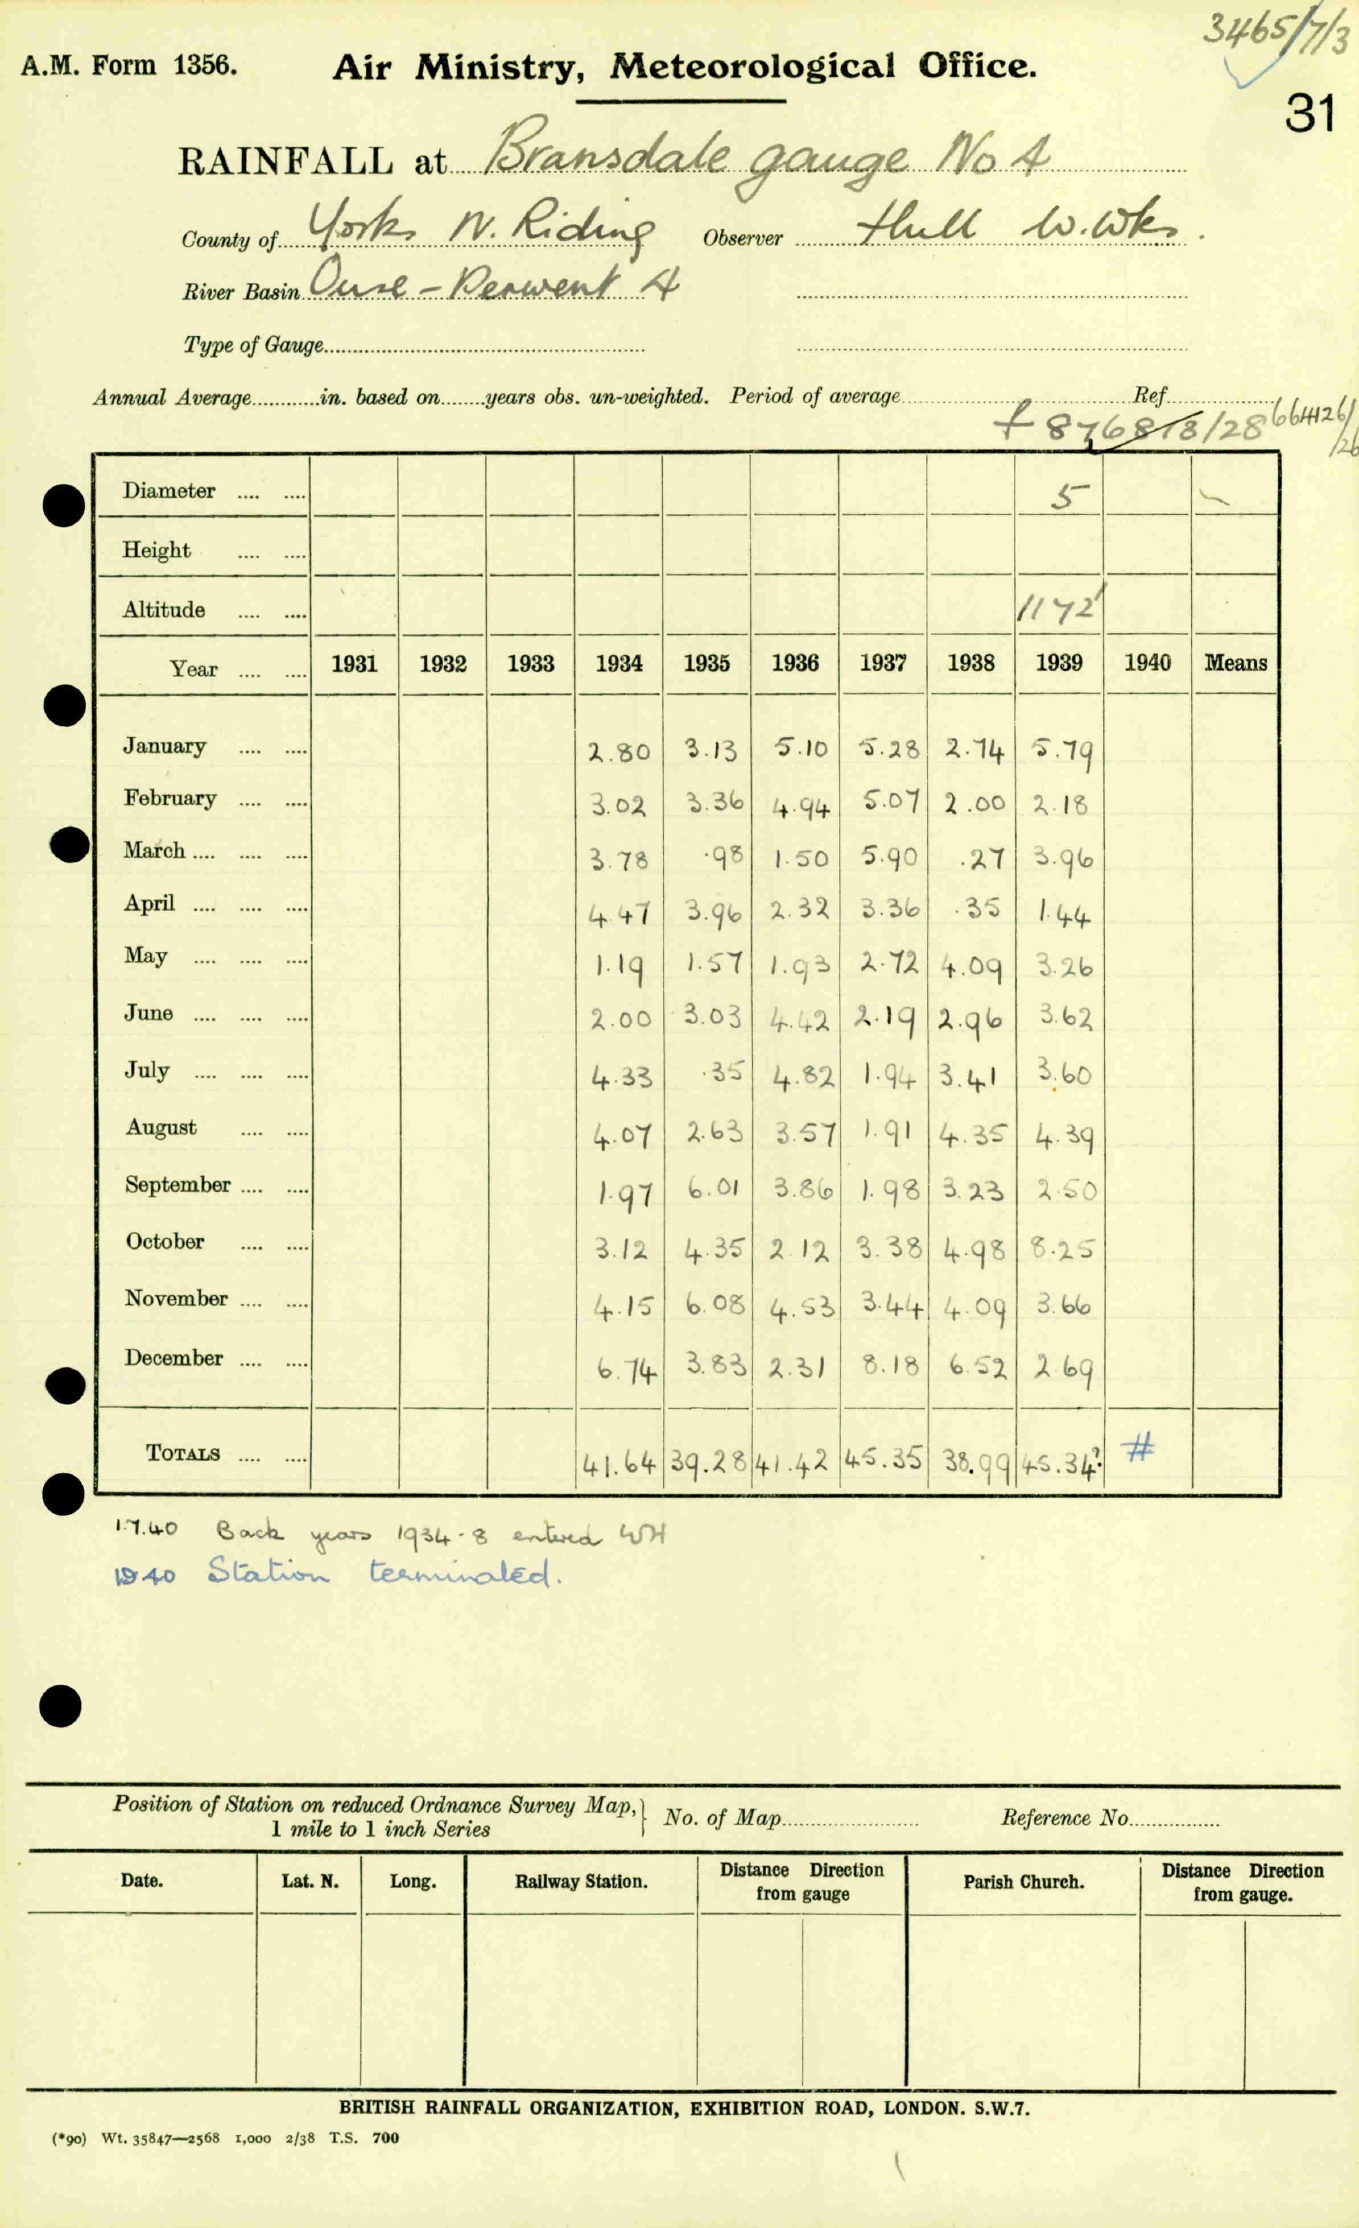 3465/7/3
A.M. Form 1356. Air Ministry, Meteorological Office.
31
RAINFALL at Bransdale gauge No 4
County of Yorks N. Riding Observer Hull W.Wks.
River Basin Ouse - Derwent 4
Type of Gauge
Annual Average in. based on years obs. un-weighted. Period of average Ref.
Diameter 5
Height
Altitude 1172'
Year 1931 1932 1933 1934 1935 1936 1937 1938 1939 1940 Means
January 2.80 3.13 5.10 5.28 2.74 5.79
February 3.02 3.36 4.94 5.07 2.00 2.18
March 3.78 .98 1.50 5.90 .27 3.96
April 4.47 3.96 2.32 3.36 .35 1.44
May 1.19 1.57 1.93 2.72 4.09 3.26
June 2.00 3.03 4.42 2.19 2.96 3.62
July 4.33 .35 4.82 1.94 3.41 3.60
August 4.07 2.63 3.57 1.91 4.35 4.39
September 1.97 6.01 3.86 1.98 3.23 2.50
October 3.12 4.35 2.12 3.38 4.98 8.25
November 4.15 6.08 4.53 3.44 4.09 3.66
December 6.74 3.83 2.31 8.18 6.52 2.69
TOTALS 41.64 39.28 41.42 45.35 38.99 45.34? #
1.7.40 Back years 1934-8 entered WH
1940 Station terminated.
Position of Station on reduced Ordnance Survey Map, 1 mile to 1 inch Series } No. of Map Reference No.
Date. Lat. N. Long. Railway Station. Distance Direction from gauge Parish Church. Distance Direction from gauge.
BRITISH RAINFALL ORGANIZATION, EXHIBITION ROAD, LONDON. S.W.7.
(*90) Wt. 35847—2568 1,000 2/38 T.S. 700